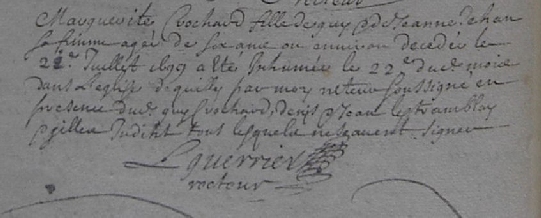 Marguerite Crochard fille de guy & de Jeanne Jehan
sa femme agée de six ans ou environ decedée le
21e Juillet 1699 a ete Inhumée le 22e dud. mois
dans L'eglise par moy recteur soussigné en
presence dud. guy Crochard, denys & Jean les tramblay
& gillen Judith tous lesquels ne scavent signer
L guerrier
recteur